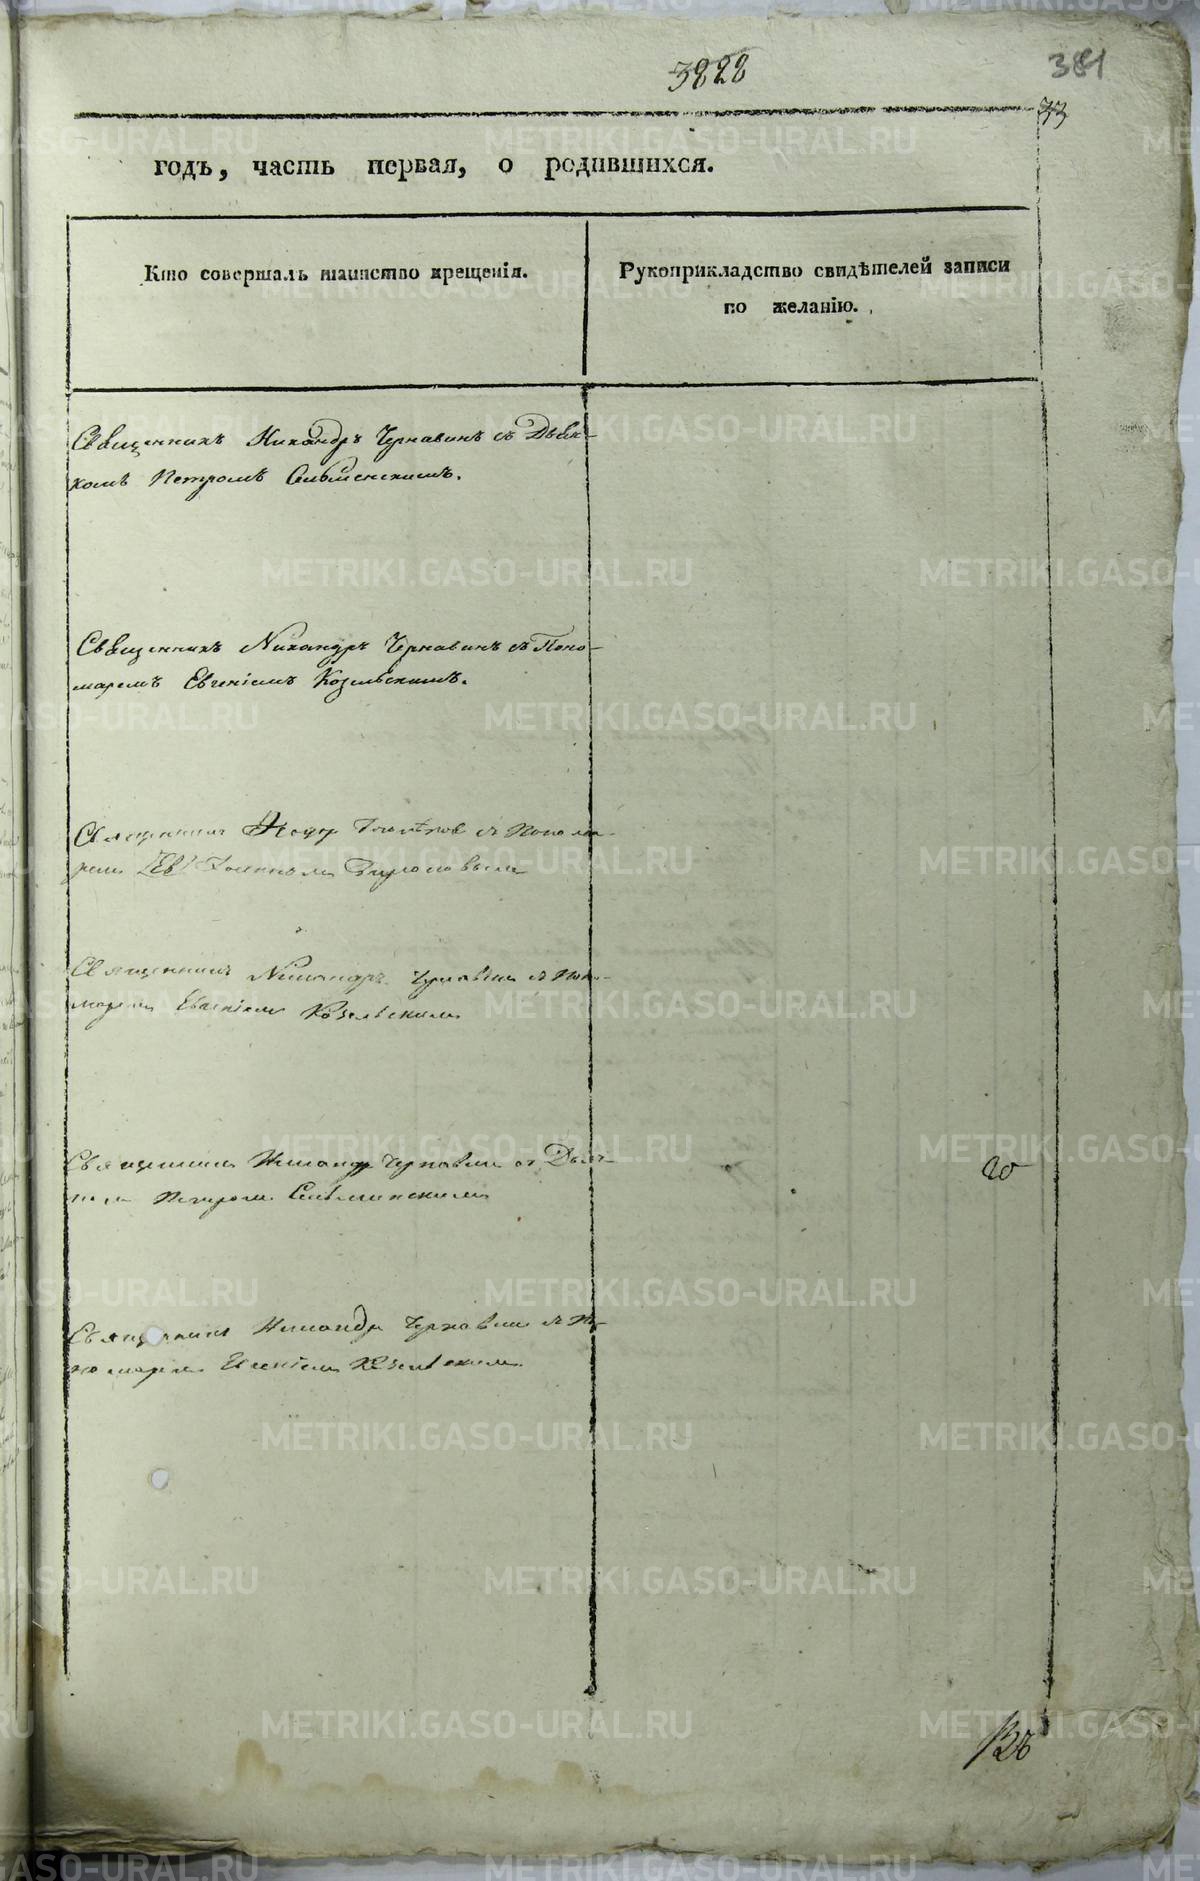 3828
381
33
годъ, часть первая, о родившихся.
Кто совершалъ таинство крещенія.
Рукоприкладство свидѣтелей записи
по желанію.
Священникъ Никандръ Чернавинъ съ Дьяч-
комъ Петромъ Сильменскимъ.
Священникъ Никандръ Чернавинъ съ Поно-
маремъ Евгеніемъ Козельскимъ.
Священникъ съ Понома-
ремъ
Священникъ Никандръ Чернавинъ съ Поно-
маремъ Евгеніемъ Козельскимъ
Священникъ Никандръ Чернавинъ съ Дьяч-
комъ Петромъ Сильменскимъ
Священникъ Никандръ Чернавинъ съ По-
номаремъ Евгеніемъ Козельскимъ
METRIKI.GASO-URAL.RU